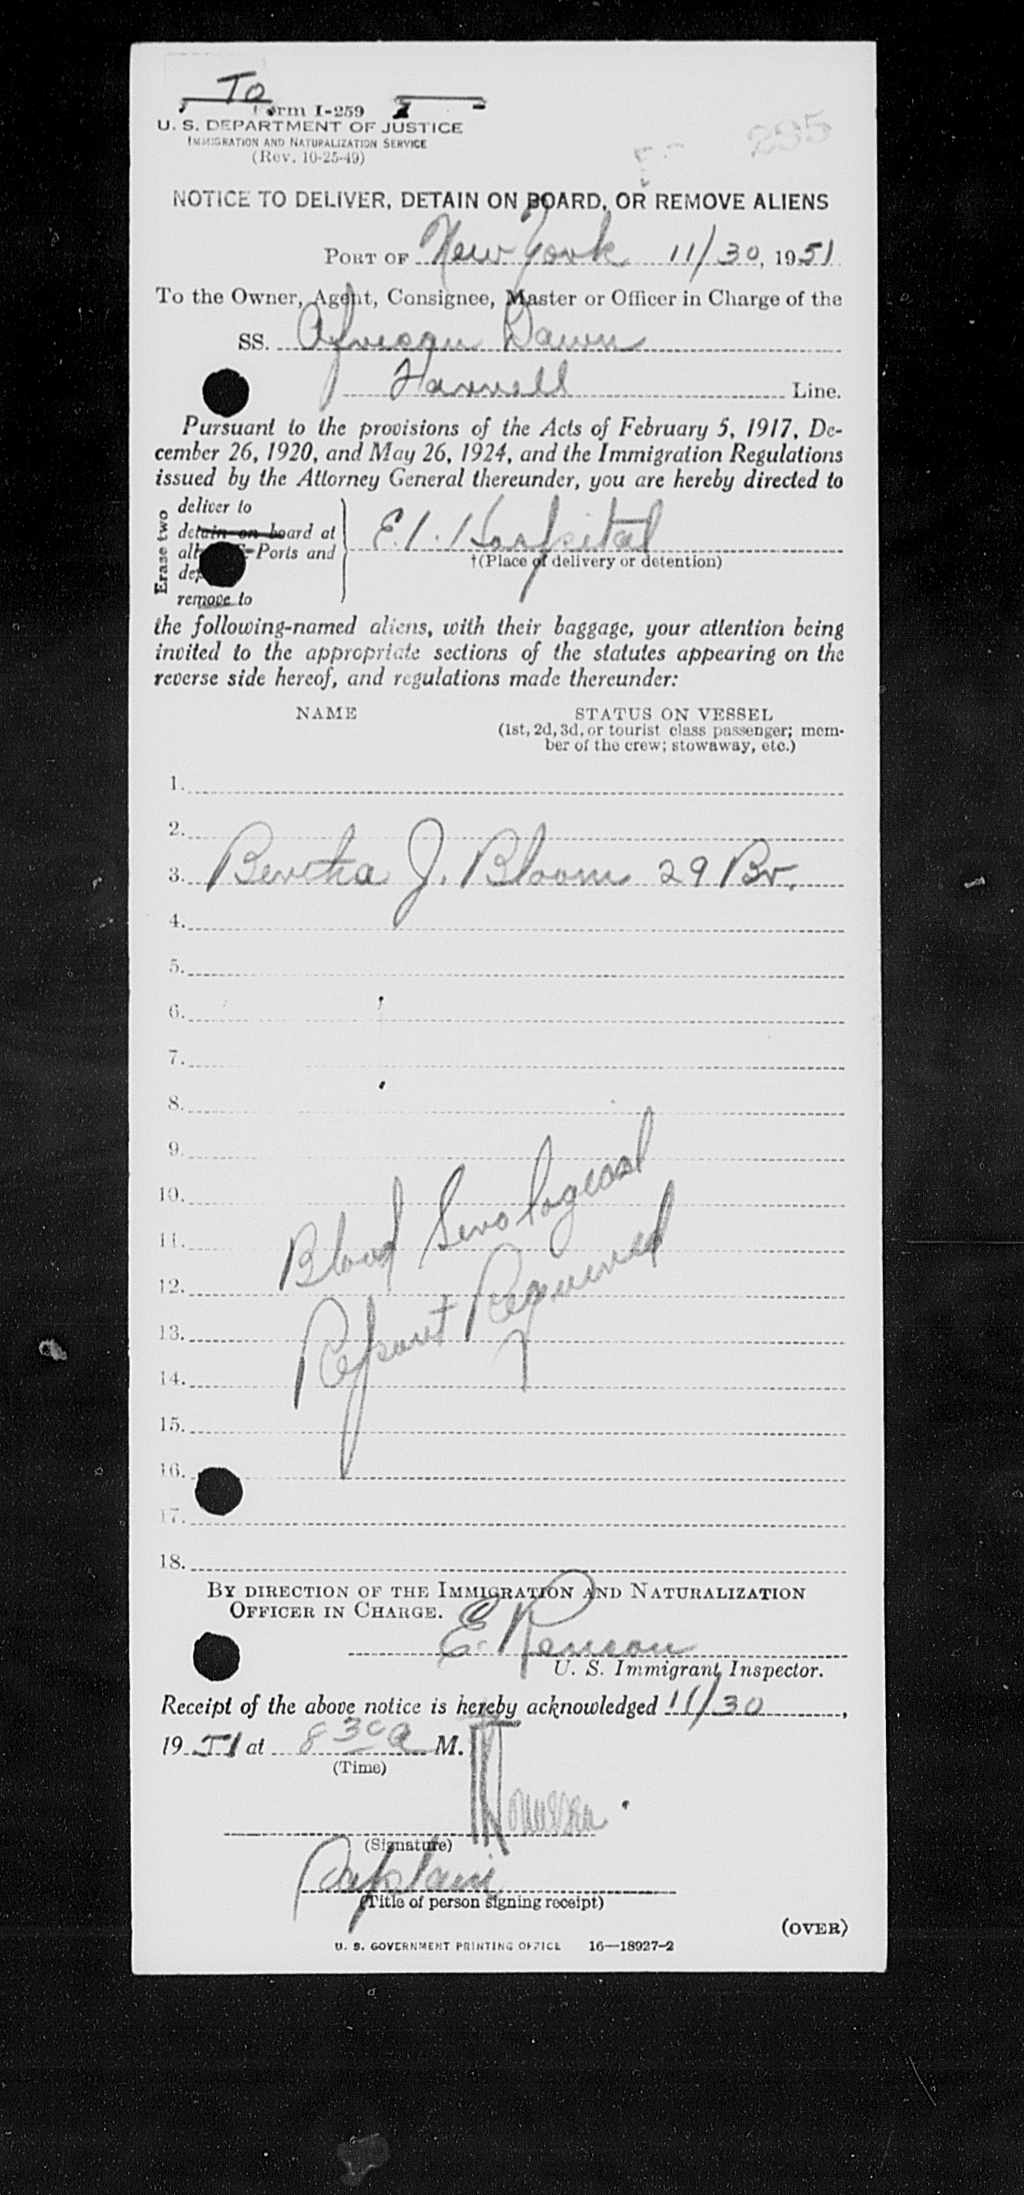 To
Form I-259
U. S. DEPARTMENT OF JUSTICE
IMMIGRATION AND NATURALIZATION SERVICE
(Rev. 10-25-49)
295
NOTICE TO DELIVER, DETAIN ON BOARD, OR REMOVE ALIENS
PORT OF New York 11/30, 1951
To the Owner, Agent, Consignee, Master or Officer in Charge of the
SS. African Dawn
Farrell Line.
Pursuant to the provisions of the Acts of February 5, 1917, De-
cember 26, 1920, and May 26, 1924, and the Immigration Regulations
issued by the Attorney General thereunder, you are hereby directed to
Erase two
deliver to
detain on board at
all Ports and
remove to
E.I. Hospital
†(Place of delivery or detention)
the following-named aliens, with their baggage, your attention being
invited to the appropriate sections of the statutes appearing on the
reverse side hereof, and regulations made thereunder:
NAME STATUS ON VESSEL
(1st, 2d, 3d, or tourist class passenger; mem-
ber of the crew; stowaway, etc.)
1.
2.
3. Bertha J. Bloom 29 Br.
4.
5.
6.
7.
8.
9.
10.
11.
12.
13.
14.
15.
16.
17.
18.
Blood Serological
Report Required
BY DIRECTION OF THE IMMIGRATION AND NATURALIZATION
OFFICER IN CHARGE.
E.
U. S. Immigrant Inspector.
Receipt of the above notice is hereby acknowledged 11/30,
1951 at 8 30 a M.
(Time)
(Signature)
Captain
(Title of person signing receipt)
(OVER)
U. S. GOVERNMENT PRINTING OFFICE 16—18927-2